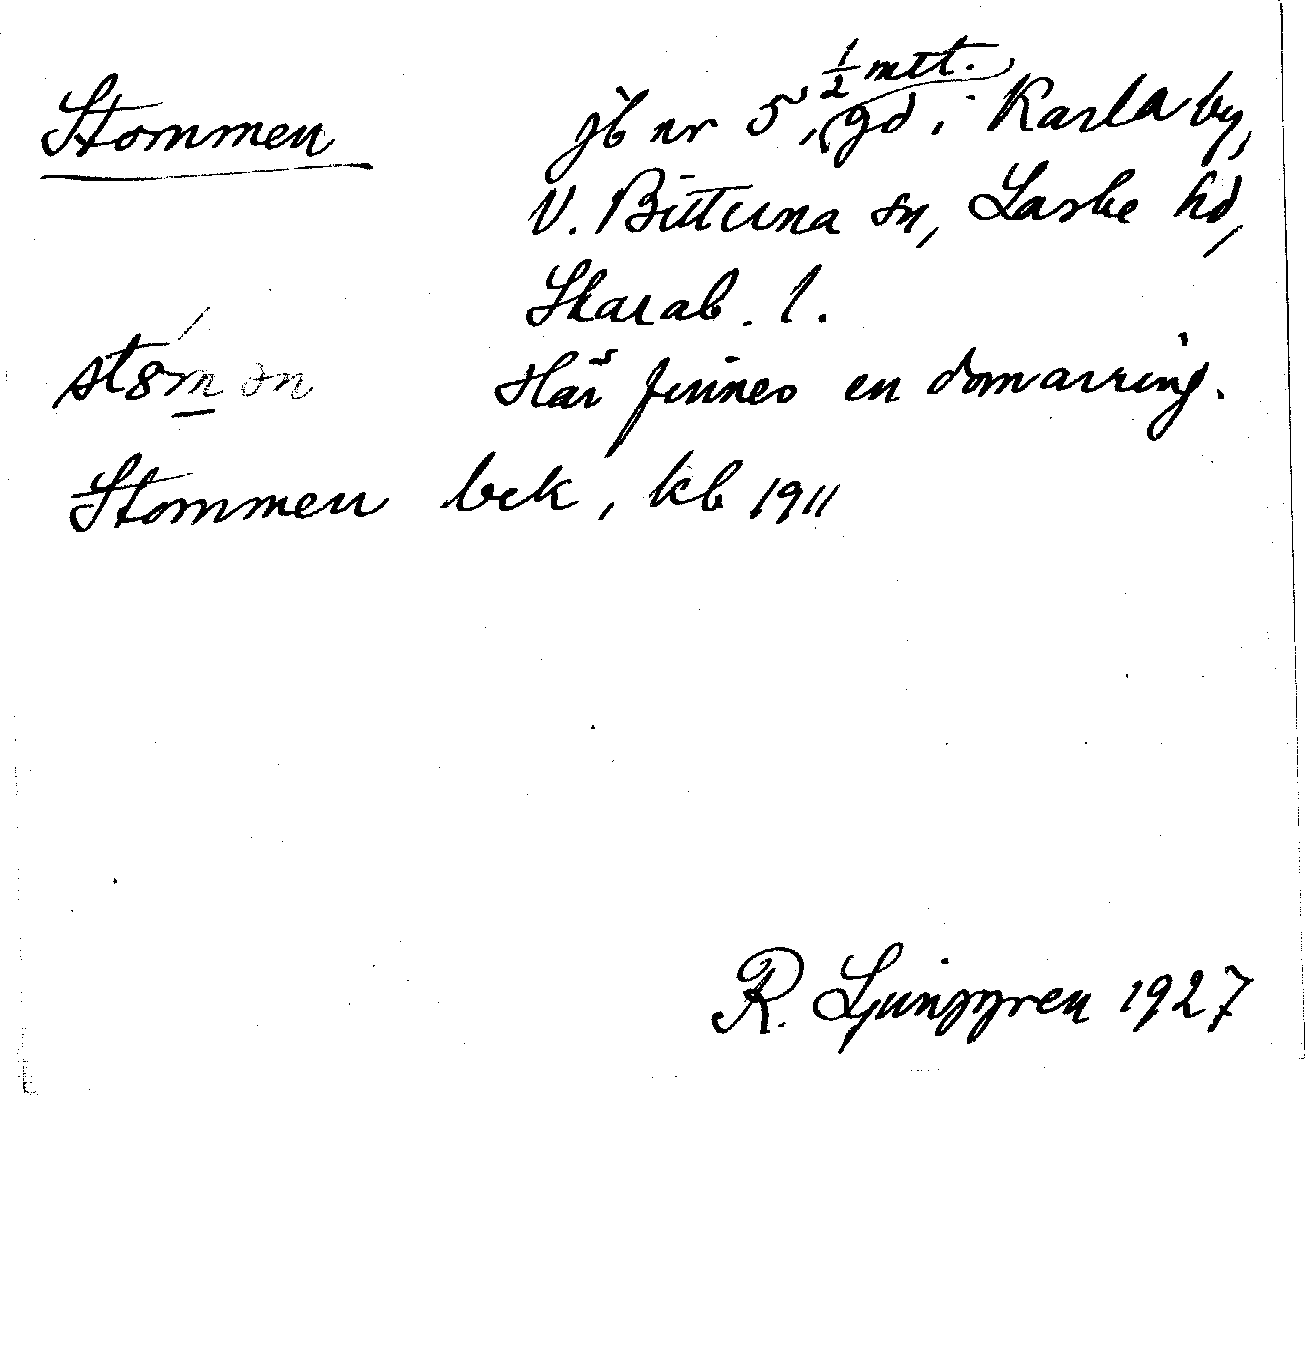 Stommen
jb nr 5, ½ mtt. gd i Karla by,
V. Bitterna sn, Laske hd,
Skarab. l.
st8m ən
Här finnes en domarring.
Stommen bek, kb 1911
R. Ljunggren 1927